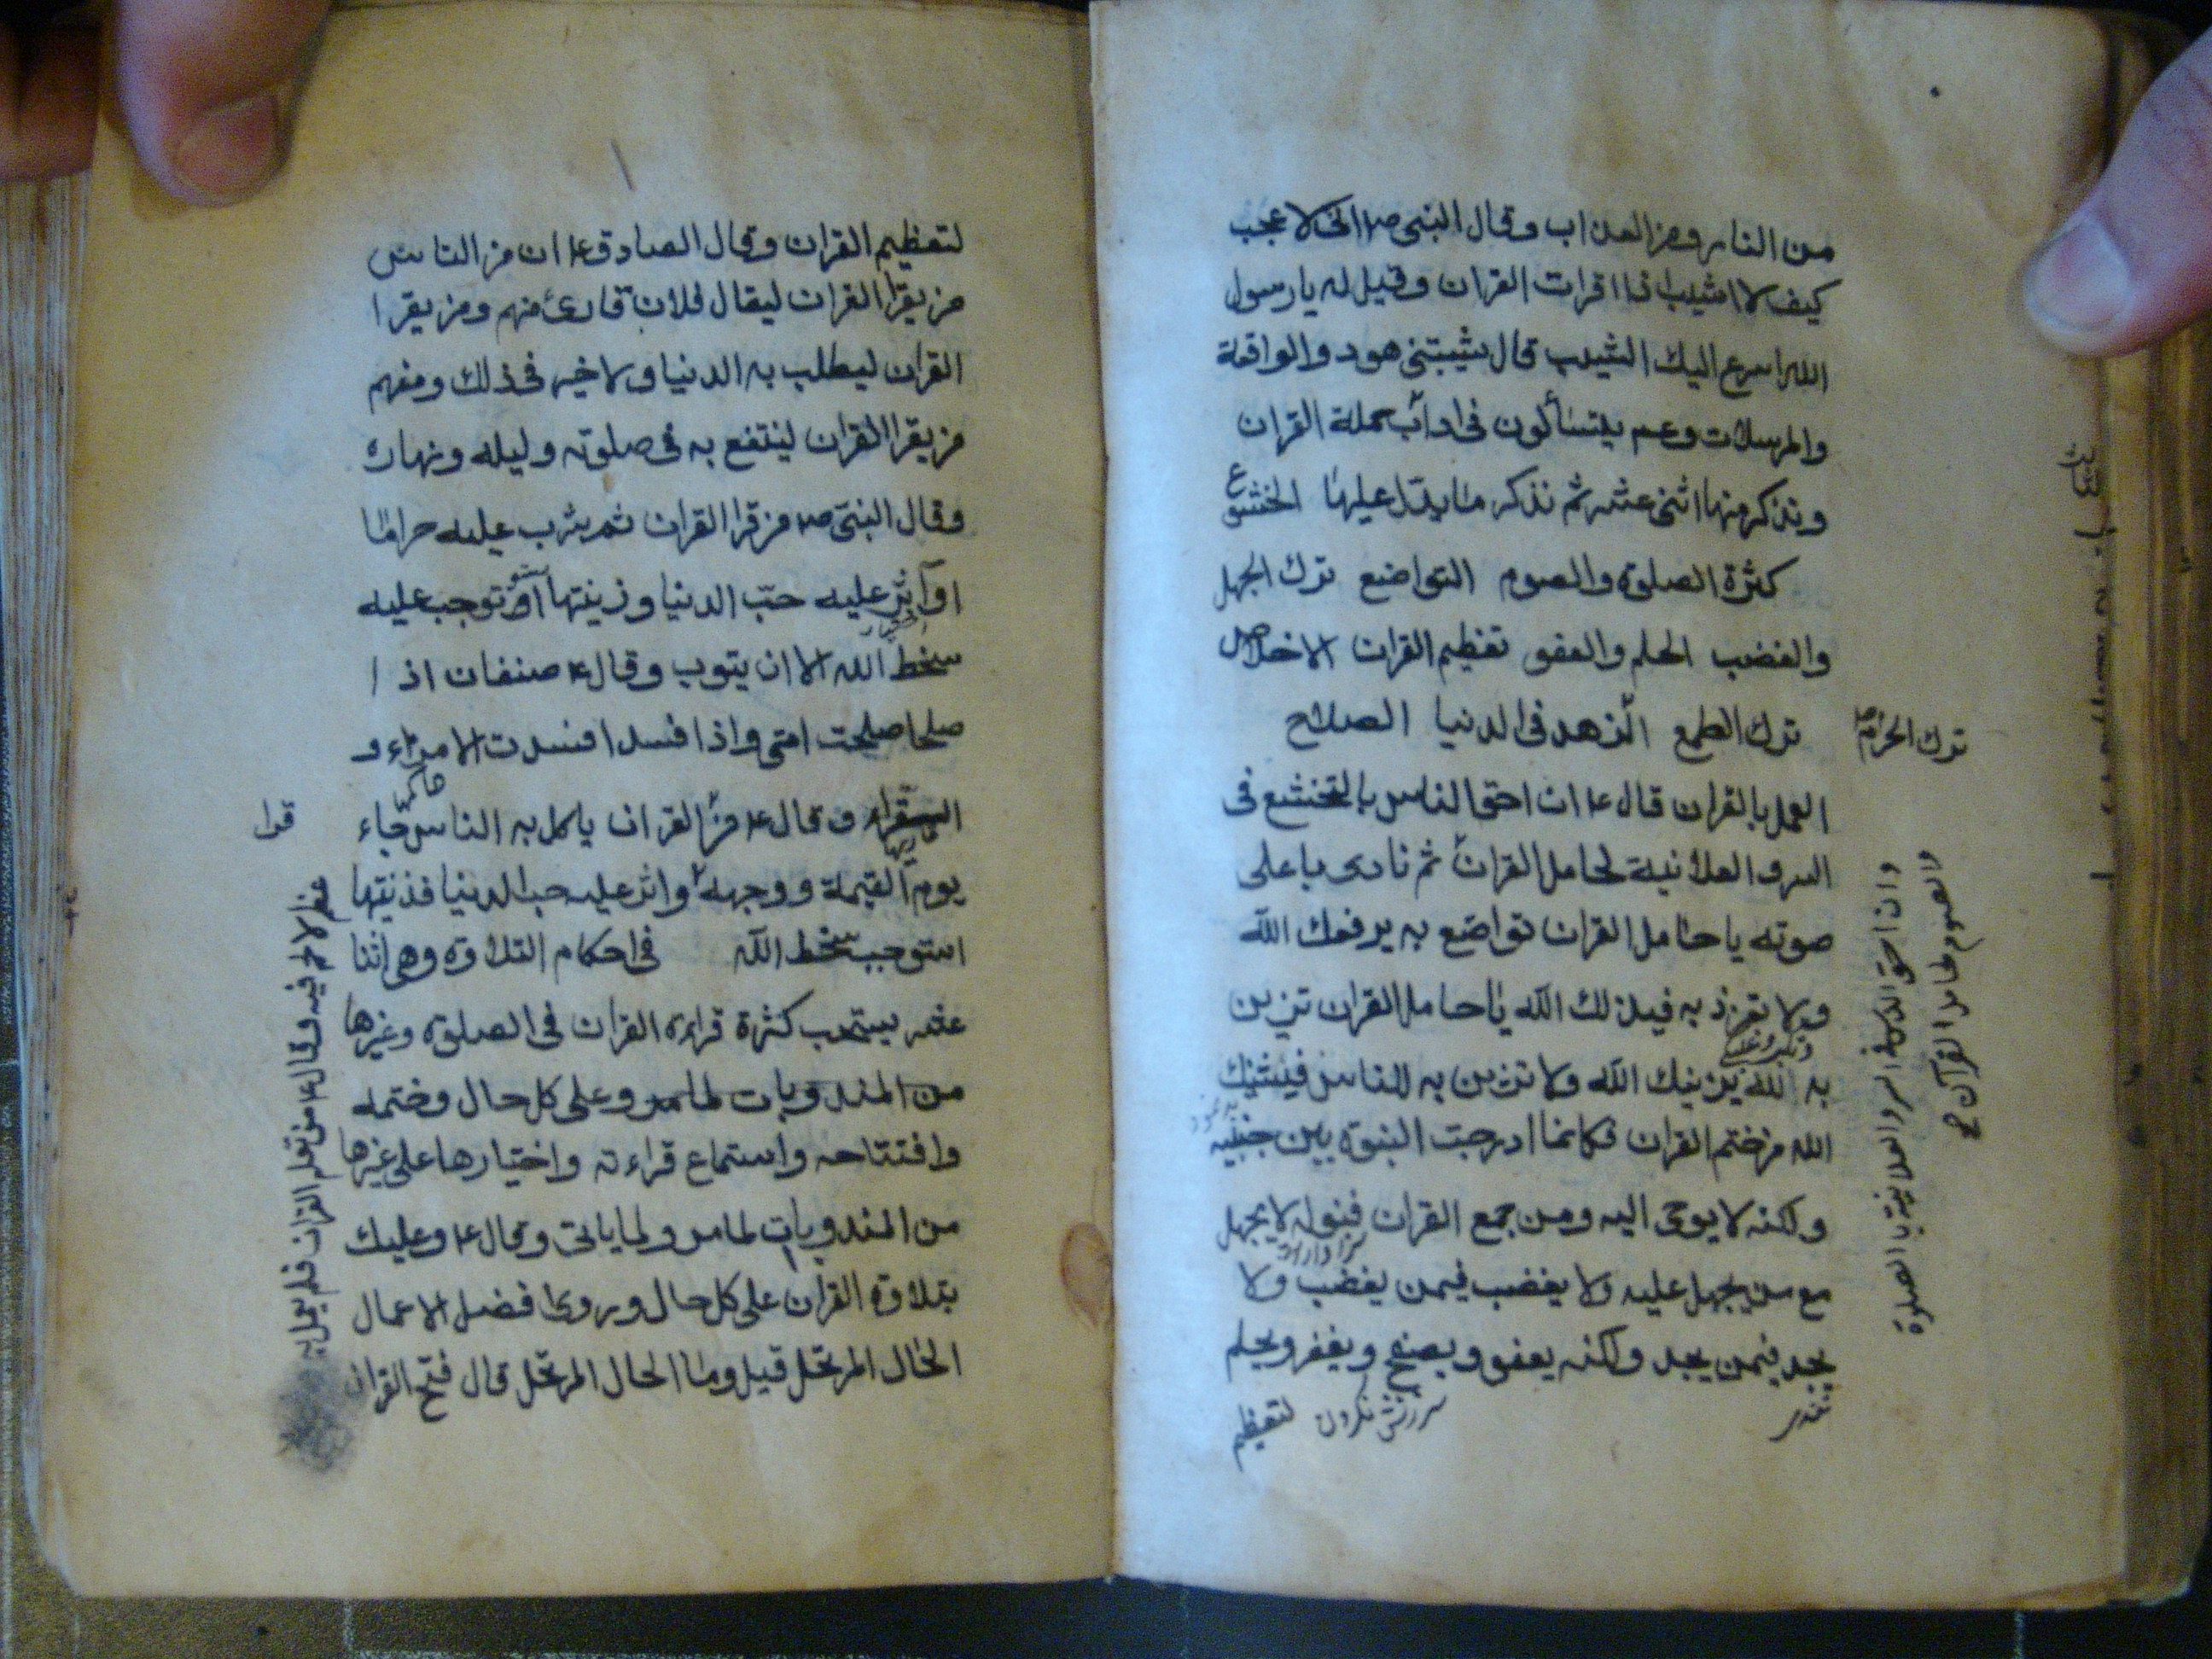 من النار ومن العذاب وقال النبى ص انى لا عجب
كيف لا اشيب اذا قرات القران وقيل له يا رسول
الله اسرع اليك الشيب قال شيبتنى هود والواقعة
والمرسلات وعم يتسألون فى اداب حملة القران
ونذكر منها اثنى عشر ثم نذكر ما يدل عليها الخشوع
كثرة الصلوة والصوم التواضع ترك الجهل
والغضب الحلم والعفو تعظيم القران الاخلاص
ترك الطمع الزهد فى الدنيا الصلاح
ترك الحرام
العمل بالقران قال ع ان احق الناس بالتخشع فى
السر والعلانية لحامل القران ثم نادى باعلى
صوته يا حامل القران تواضع به يرفعك الله
ولا تعزز به فيذلك الله يا حامل القران تزين
به لله يزينك الله ولا تزين به للناس فيشينك
الله من ختم القران فكانما ادرجت النبوة بين جنبيه
ولكنه لا يوحى اليه ومن جمع القران فنوله لا يجهل
مع من يجهل عليه ولا يغضب فيمن يغضب ولا
يجد فيمن يجد ولكنه يعفو ويصفح ويغفر ويحلم
لتعظيم
وان احق الناس فى السر والعلانية بالصلوة
والصوم لحامل القرآن
لتعظيم القران وقال الصادق ع ان من الناس
من يقرا القران ليقال فلان قارئ منهم ومن يقرا
القران ليطلب به الدنيا ولا خير فى ذلك ومنهم
من يقرا القران لينتفع به فى صلوته وليله ونهاره
وقال النبى ص من قرا القران ثم شرب عليه حراما
او آثر عليه حب الدنيا وزينتها توجب عليه
سخط الله الا ان يتوب وقال ع صنفان اذا
صلحا صلحت امتى واذا فسدا فسدت الامراء و
القراء وقال ع من القران ياكل به الناس جاء
قرا
يوم القيمة ووجهه واثر عليه حب الدنيا وزينتها
استوجب سخط الله فى احكام التلاوة وهى اثنا
عشر يستحب كثرة قراءة القران فى الصلوة وغيرها
من المندوبات لما مر وعلى كل حال وختمه
وافتتاحه واستماع قراءته واختيارها على غيرها
من المندوبات لما مر ولما ياتى وقال ع وعليك
بتلاوة القران على كل حال وروى افضل الاعمال
الحال المرتحل قيل وما الحال المرتحل قال فتح القران
عظم لا لحم فيه وقال ع من تعلم القران فلم يعمل به